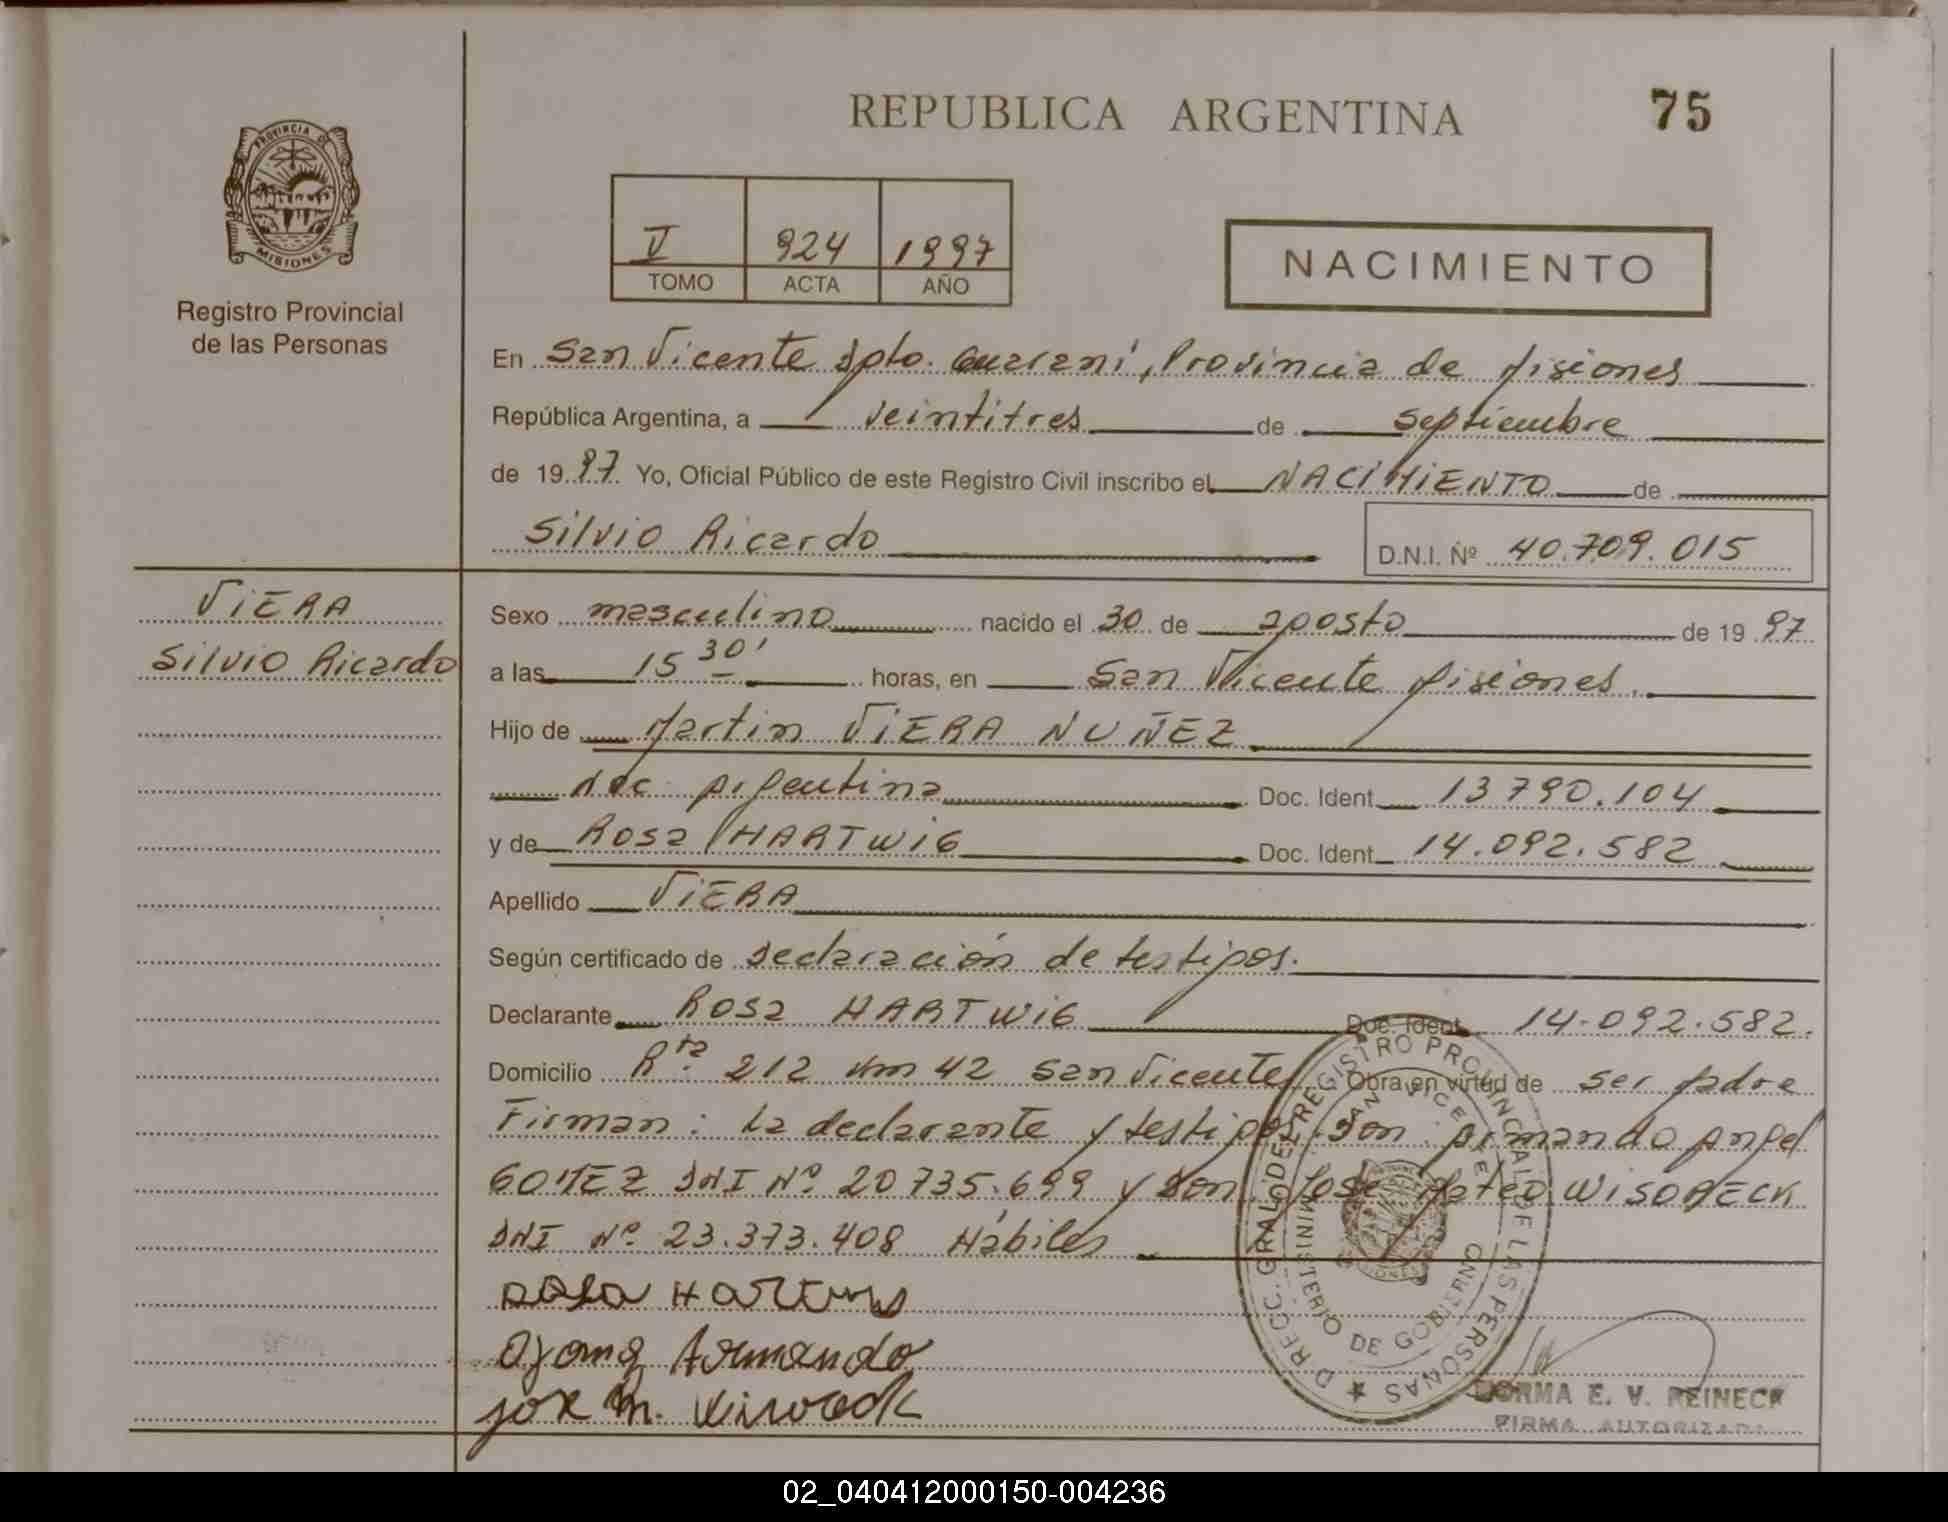 REPUBLICA ARGENTINA
75
PROVINCIA DE
MISIONES
Registro Provincial
de las Personas
V 924 1997
TOMO ACTA AÑO
NACIMIENTO
En San Vicente Dpto. Guaraní, Provincia de Misiones
República Argentina, a veintitres de septiembre
de 1997. Yo, Oficial Público de este Registro Civil inscribo el NACIMIENTO de
Silvio Ricardo D.N.I. Nº 40.709.015
VIERA
Silvio Ricardo
Sexo masculino nacido el 30 de agosto de 1997
a las 15 30' horas, en San Vicente Misiones.
Hijo de Martin VIERA NUÑEZ
Nac. Argentina Doc. Ident. 13790.104
y de Rosa HARTWIG Doc. Ident. 14.092.582
Apellido VIERA
Según certificado de Declaración de testigos.
Declarante Rosa HARTWIG Doc. Ident. 14.092.582.
Domicilio Rta. 212 Km 42 San Vicente Obra en virtud de ser Madre
Firman: La declarante y testigos Don: Armando Angel
GOMEZ DNI Nº 20735.699 y Don José Mateo WISORECK
DNI Nº 23.373.408 Hábiles
Rosa Hartwig
Armando
jose M.
D RECC. GRAL. DEL REGISTRO PROVINCIAL DE LAS PERSONAS
MINISTERIO DE GOBIERNO
SAN VICENTE
MISIONES
NORMA E. V. REINECK
FIRMA AUTORIZADA
02_040412000150-004236